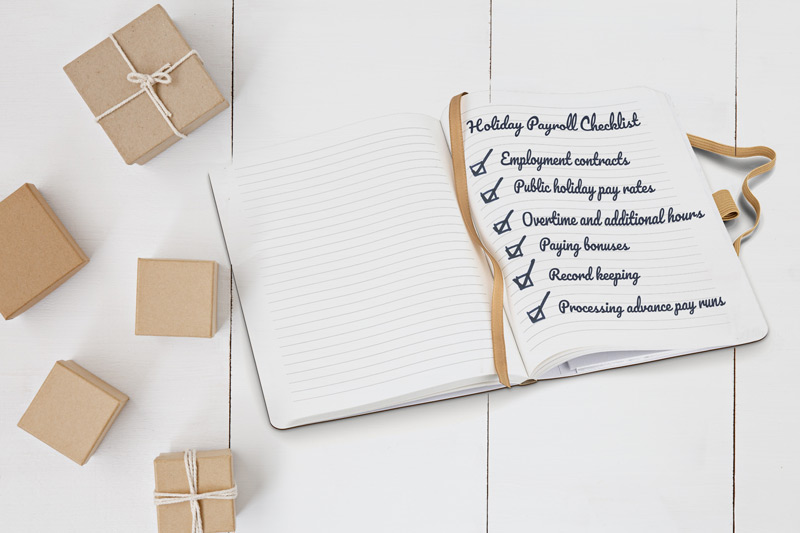 Holiday Payroll Checklist
Employment contracts
Public holiday pay rates
Overtime and additional hours
Paying bonuses
Record keeping
Processing advance pay runs